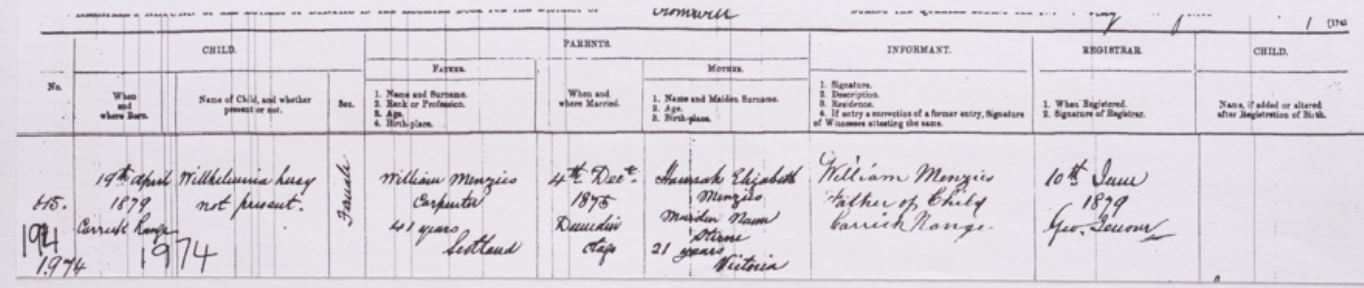 Cromwell
1 [1745
CHILD. PARENTS. INFORMANT. REGISTRAR. CHILD.
FATHER. MOTHER.
No. When and where Born. Name of Child, and whether present or not. Sex. 1. Name and Surname. 2. Rank or Profession. 3. Age. 4. Birth-place. When and where Married. 1. Name and Maiden Surname. 2. Age. 3. Birth-place. 1. Signature. 2. Description. 3. Residence. 4. If entry a correction of a former entry, Signature of Witnesses attesting the same. 1. When Registered. 2. Signature of Registrar. Name, if added or altered after Registration of Birth.
19th April Willhelimina Lucy Female William Menzies 4th Decr. Hannah Elizabeth William Menzies 10th June
1879 not present. Carpenter 1875 Menzies Father of Child 1879
Carrick Range 41 years Dunedin Maiden Name Carrick Range. Geo.
Scotland Otago Stirne
21 years
Victoria
194 1974
1974